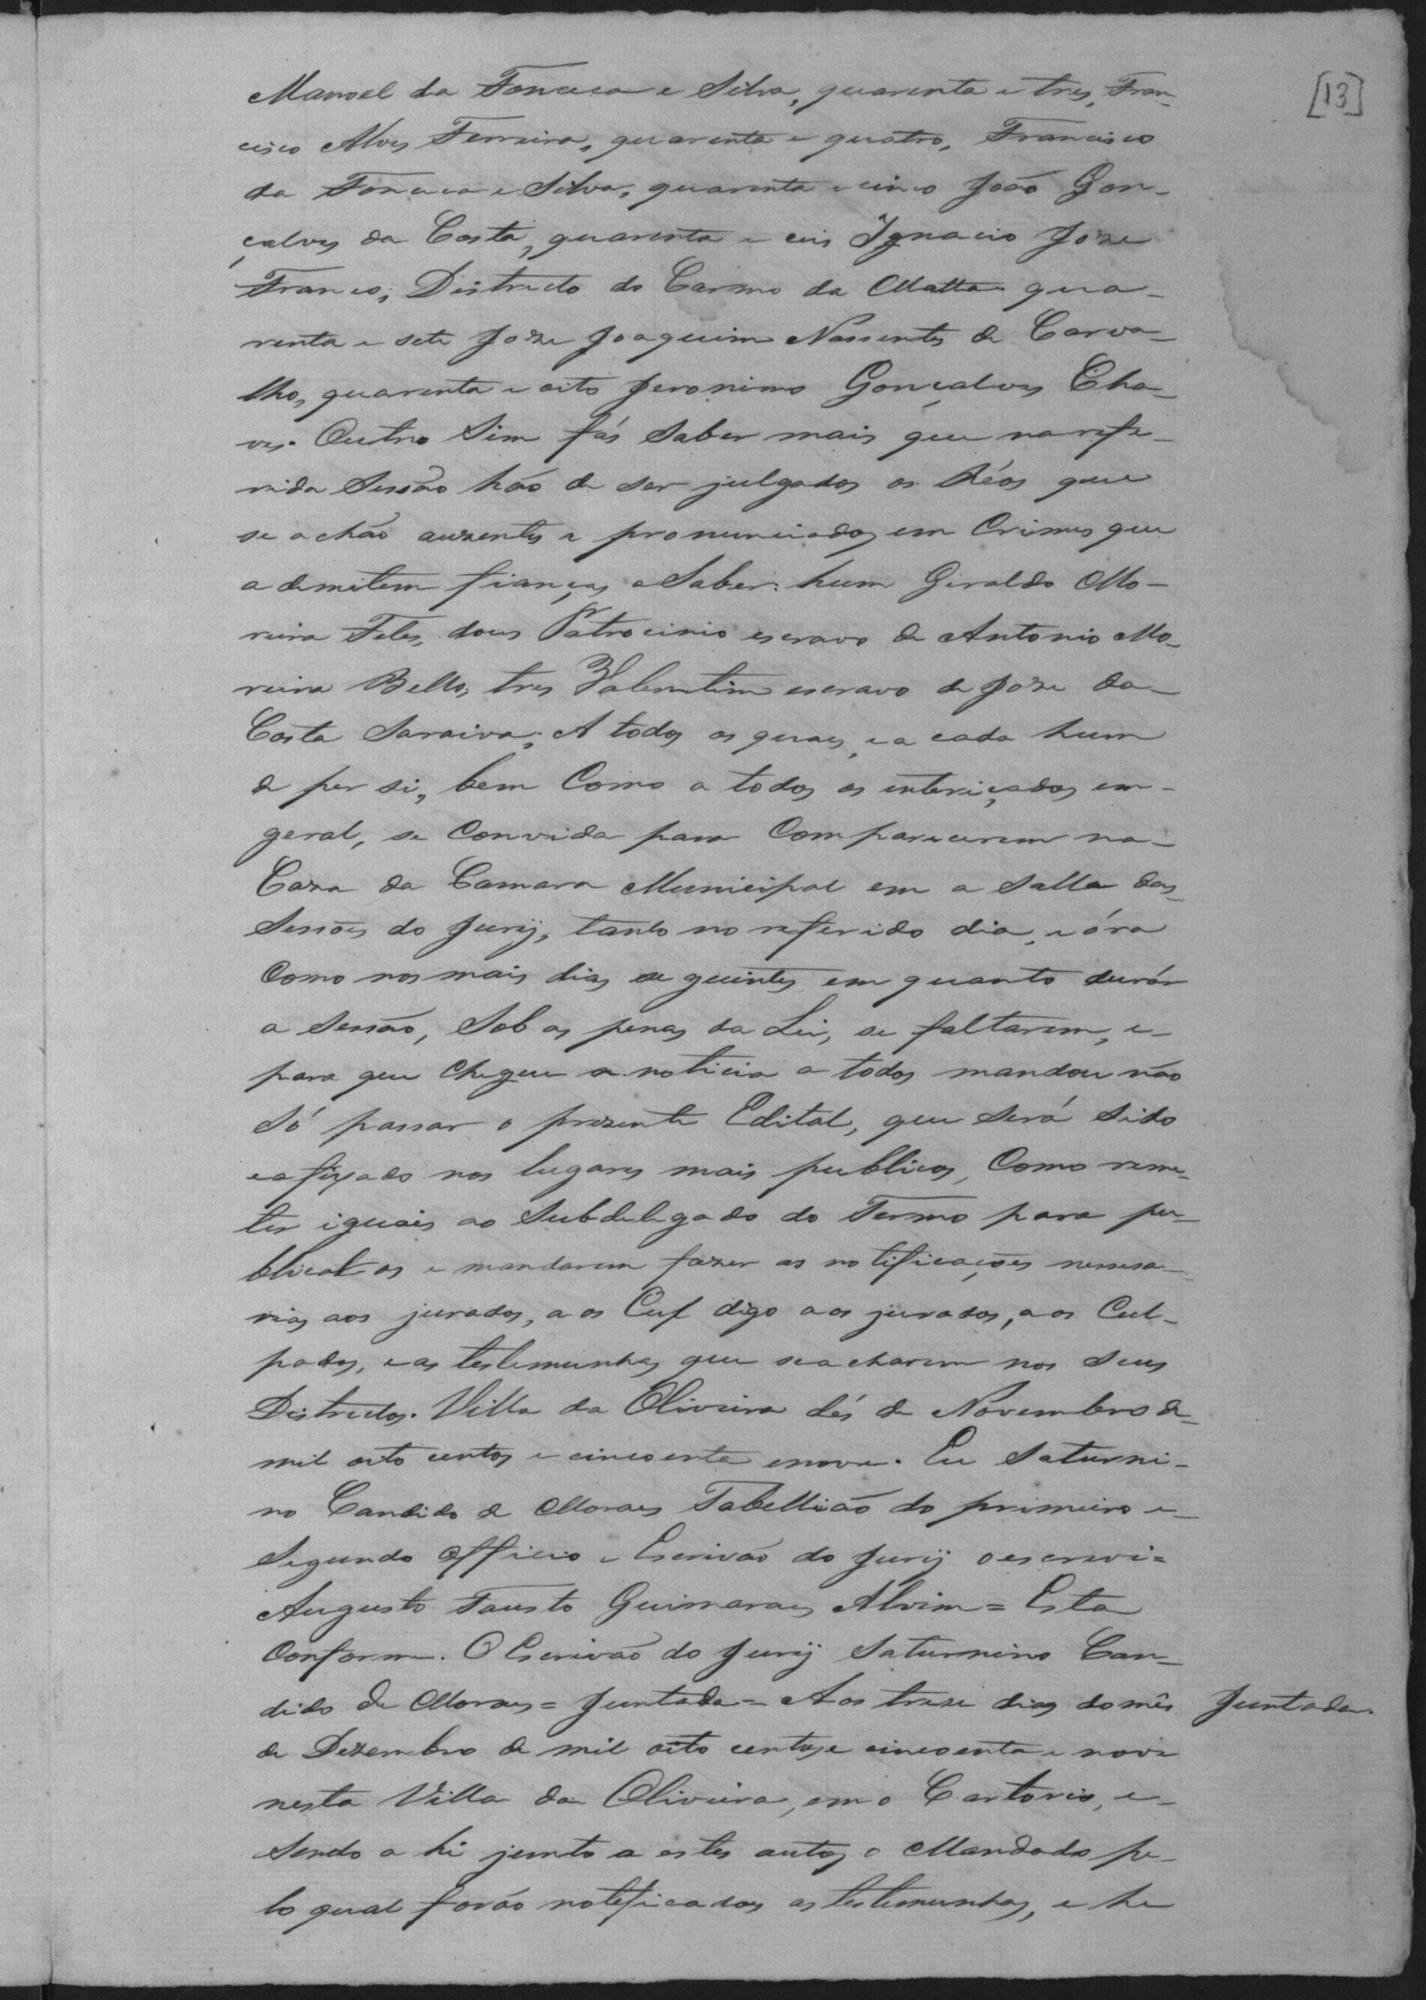 [13]
Manoel da Fonceca e Silva, quarenta e tres, Fran-
cisco Alves Ferreira, quarenta e quatro, Francisco
da Fonceca e Silva, quarenta e cinco João Gon-
çalves da Costa, quarenta e ceis Ignacio Joze
Franco, Districto do Carmo da Matta qua-
renta e sete Joze Joaquim Nascentes de Carva-
lho, quarenta e oito Jeronimo Gonçalves Cha-
ves. Outro Sim fás Saber mais que na refe-
rida Sessão hão de ser julgados os Réos que
se achão auzentes e pronunciados em Crimes que
ademitem fianças a Saber: hum Giraldo Mo-
reira Teles, dous Patrocinio escravo de Antonio Mo-
reira Bello, tres Valentim escravo de Joze da
Costa Saraiva; A todos os quaes, e a cada hum
de per si, bem Como a todos os interiçados em-
geral, se Convida para Comparecerem na-
Caza da Camara Municipal em a Salla das
Sessões do Jurÿ, tanto no referido dia, e óra
Como nos mais dias seguintes em quanto durár
a Sessão, Sob as penas da Lei, se faltarem, e-
para que chegue a noticia a todos mandou não
Só passar o prezente Edital, que Será Sido
e afixado nos lugares mais publicos, Como reme-
ter iguais ao Subdelegado do Termo para pu-
blical os e mandarem fazer as notificações nessesa-
rias aos jurados, aos Culp digo aos jurados, aos Cul-
pados, e as testemunhas que se acharem nos Seus
Districtos. Villa da Oliveira dés de Novembro de
mil oito centos e cincoenta enove. Eu Saturni-
no Candido de Moraes Tabellião do primeiro e-
Segundo Officio e Escrivão do Jurÿ o escrevi=
Augusto Fausto Guimaraes Alvim = Esta
Conforme. O Escrivão do Jurÿ Saturnino Can-
dido de Moraes = Juntada = Aos treze dias do mês
Juntada.
de Dezembro de mil oito centos e cincoenta e nove
nesta Villa da Oliveira, em o Cartorio, e-
Sendo a hi junto a estes autos o Mandado pe-
lo qual forão notificadas as testemunhas, e he